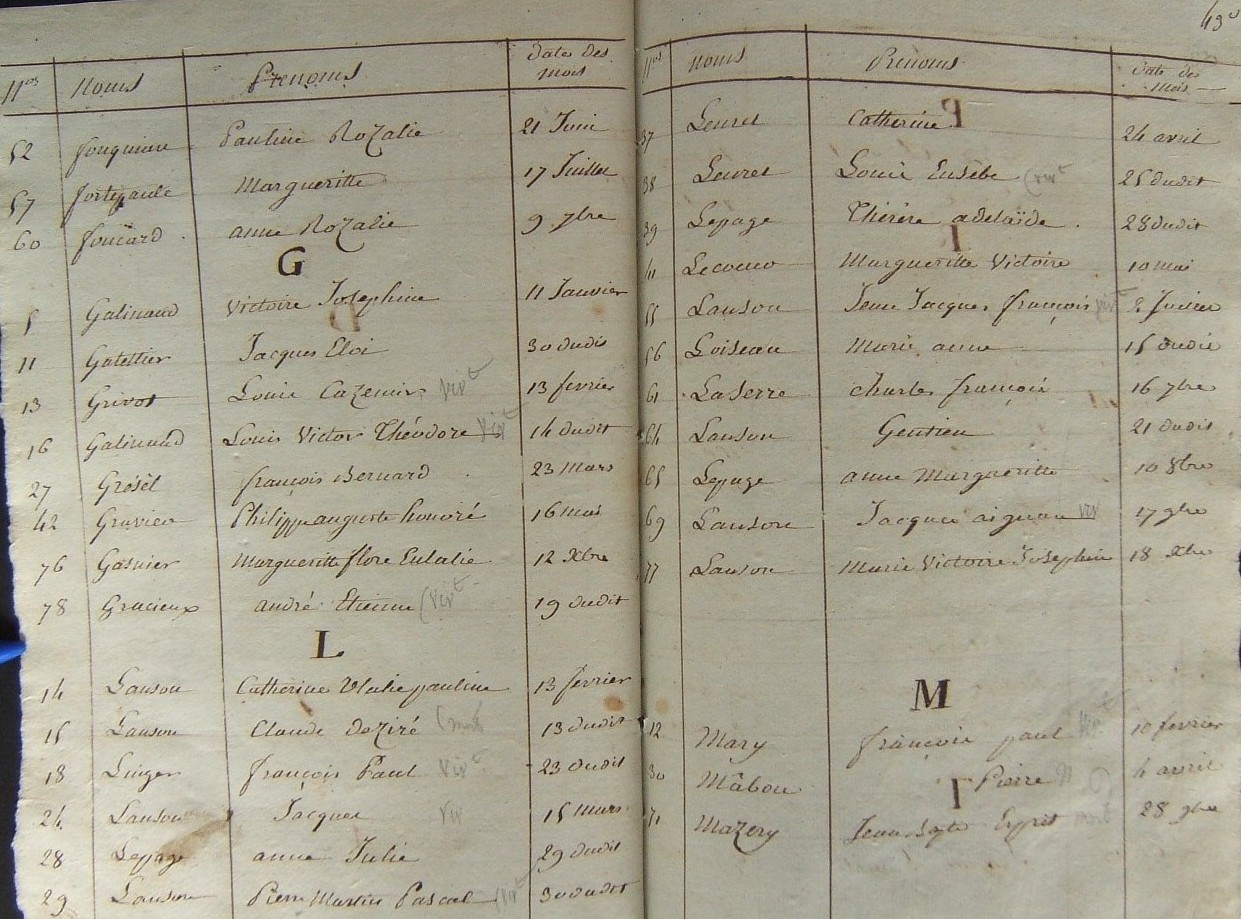 Nos Noms Prenoms Date des mois
52 fouquiau Pauline Rozalie 21 Juin
57 fortepaule Margueritte 17 Juillet
60 foucard anne Rozalie 9 7bre
G
5 Galinaud Victoire Josephine 11 Janvier
11 Galettier Jacques Eloi 30 dudit
13 Grivot Louis Cazemir vivt 13 fevrier
16 Galinaud Louis Victor Théodore vivt 14 dudit
27 Grosél françois Bernard 23 Mars
42 Gravier Philippe auguste honoré 16 mai
76 Gasnier Margueritte flore Eulalie 12 Xbre
78 Gracieux andré Etienne (vivt 19 dudit
L
14 Lanson Catherine Ulalie pauline 13 fevrier
15 Lanson Claude deziré (mort 13 dudit
18 Linger françois Paul vivt 23 dudit
24 Lanson Jacques viv 15 Mars
28 Lepage anne Julie 29 dudit
29 Lanson Pierre Martin Pascal (vivt 30 dudit
Nos Noms Prenoms Date des mois
37 Leuret Catherine 24 avril
38 Leuret Louis Eusèbe (vivt 25 dudit
39 Lepage Thérèse adelaïde 28 dudit
41 Margueritte Victoire 10 mai
55 Lanson Jean Jacques françois vivt 2 Juillet
56 Loiseau Marie anne 15 dudit
61 LaSerre Charles françois 16 7bre
64 Lanson Gentien 21 dudit
65 Lepage anne Margueritte 10 8bre
69 Lanson Jacques aignan viv 17 9bre
77 Lanson Marie Victoire Josephine 18 Xbre
M
12 Mary françois paul vivt 10 fevrier
30 Mâbou Pierre 4 avril
71 Mazery Jean Bapte Esprit mort 28 9bre